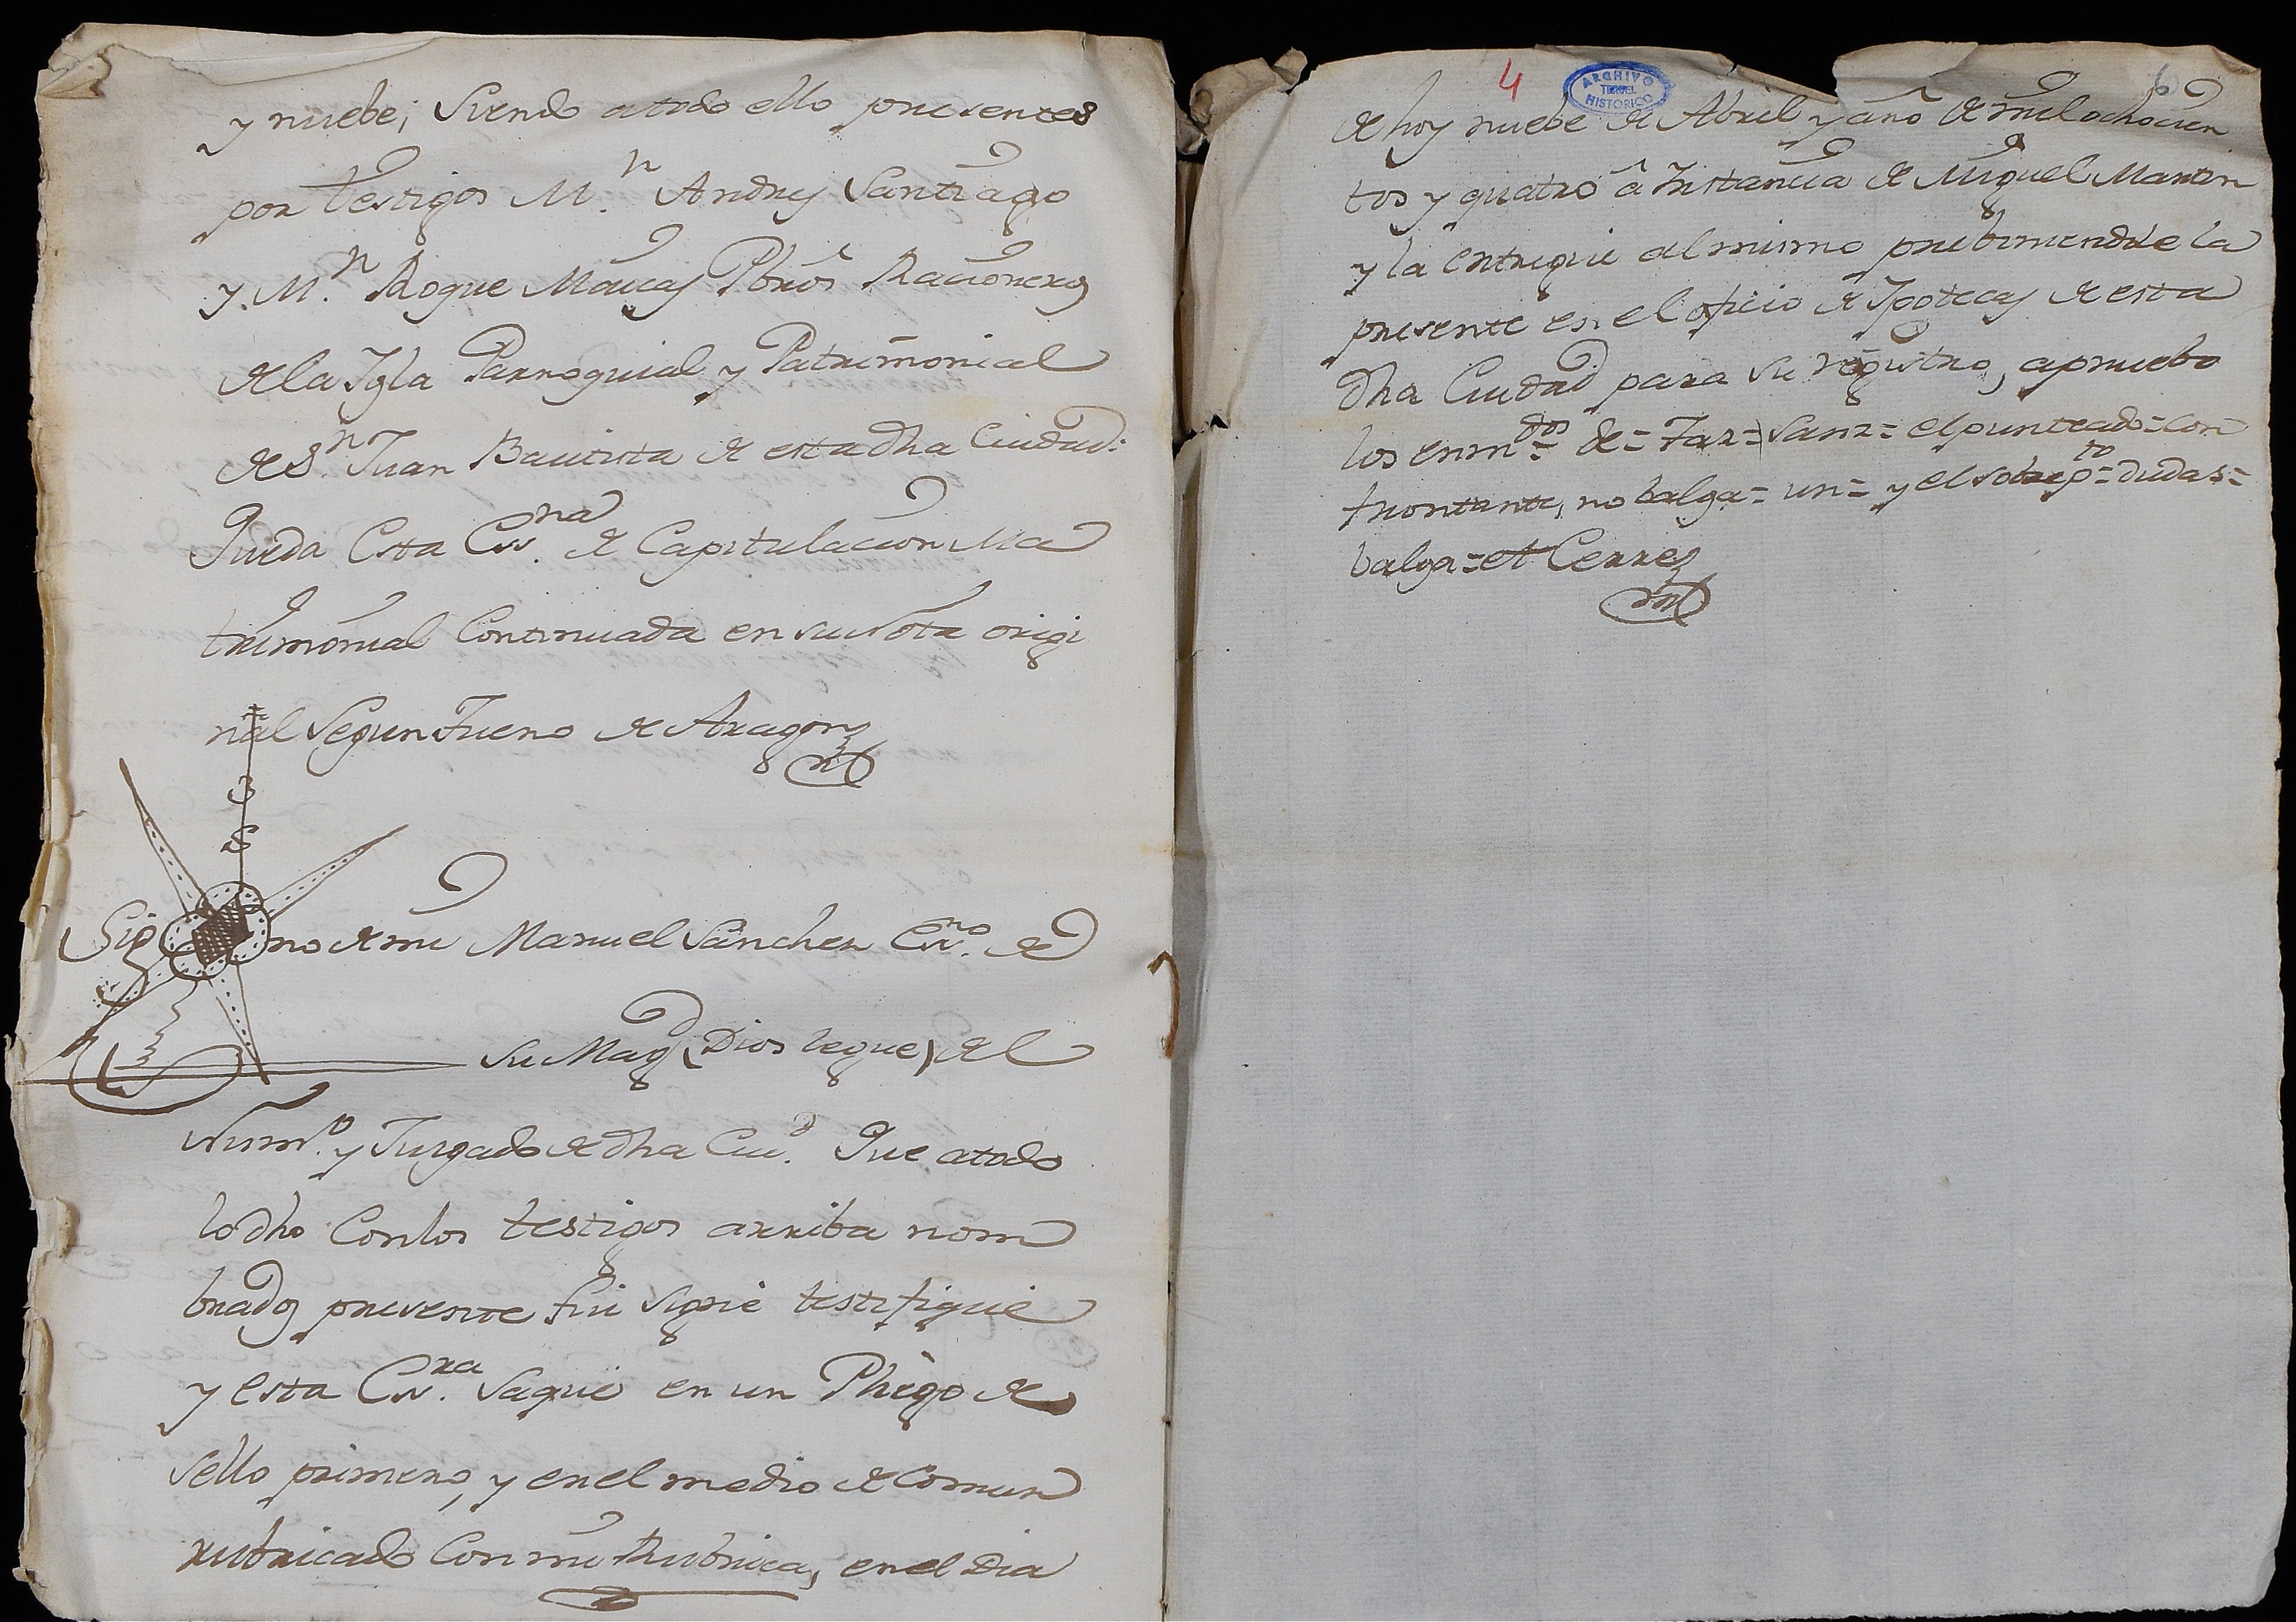 y nuebe; siendo a todo ello presentes
por testigos M.n Andres Santiago
y M.n Roque Macias Pbros Racioneros
de la Igla Parroquial y Patrimonial
de S.n Juan Bautista de esta dha Ciudad:
Queda Esta Ess.na de Capitulacion Ma
trimonial Continuada en su Nota origi
nal Segun Fuero de Aragon
Sig no de mi Manuel Sanchez Ess.no de
su Mag.d (Dios le gue) del
Num.o y Juzgado de dha Ciu.d Que a todo
lo dho Con los testigos arriba nom
brados presente fui signé testifiqué
y esta Ess.ra Saqué en un Pliego de
sello primero, y en el medio de Comun
rubricado Con mi Rubrica, en el Dia
4
ARCHIVO
HISTORICO
TERUEL
6
de hoy nuebe de Abril y año de mil ochocien
tos y quatro â Instancia de Miguel Martin
y la entregué al mismo prebiniendole la
presente en el oficio de Ypotecas de esta
dha Ciudad para su registro, apruebo
los enm.dos = de = Far = Sanz = el punteado = con
frontante, no balga = un = y el sobrep.to = dudas =
balga = et Cerre